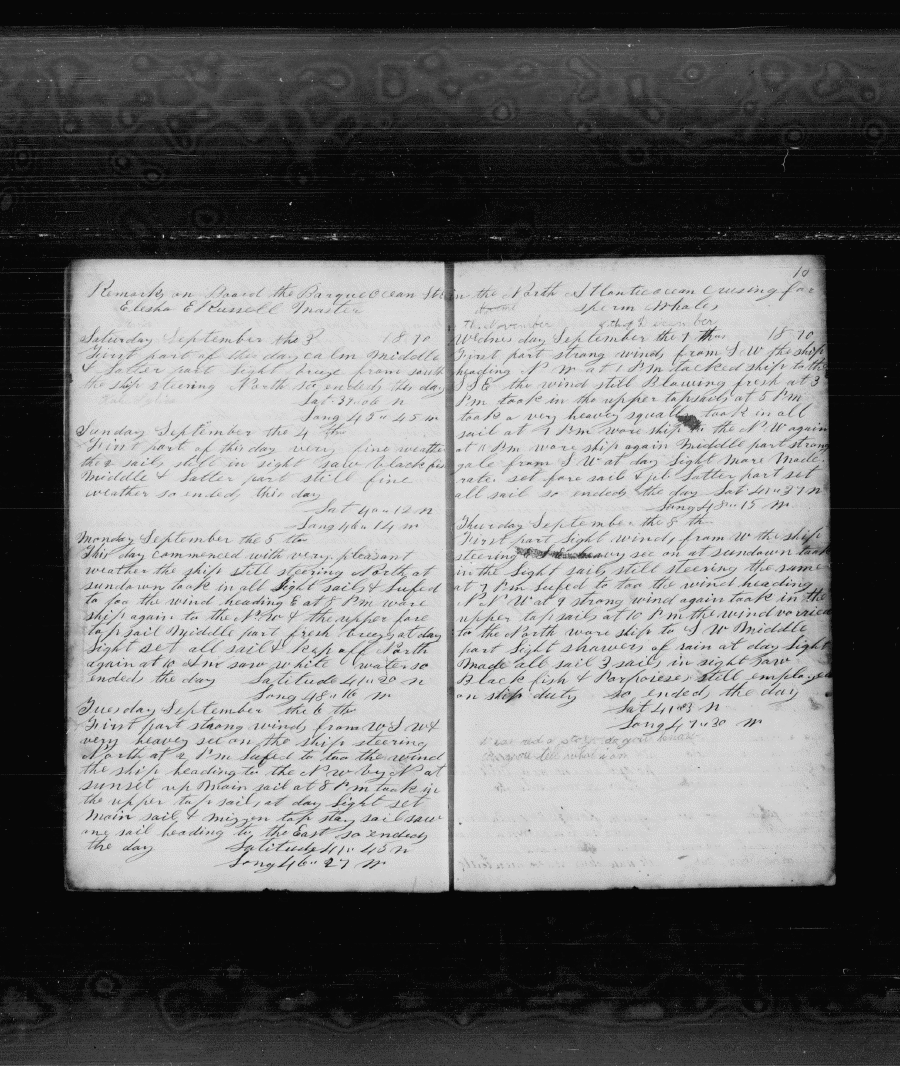 Remarks on Board the Barque Ocean
Elesha E Russell Master
Saturday September the 3 1870
First part of this day calm Middle
& Latter part light breze from south
the ship steering North so ended this day
Lat 37 " 06 N
Long 45 " 45 W
Sunday September the 4 th
First part of this day very fine weather
the sails still in sight saw black fish
Middle & Latter part still fine
weather so ended this day
Lat 40 " 12 N
Long 46 " 14 W
Monday September the 5 th
This day commenced with very pleasant
weather the ship still steering North at
sundown took in all light sails & lufed
to foo the wind heading E at 8 P m wore
ship again to the N W & the upper fore
top sail Middle part fresh breezs at day
light set all sail & Kep off North
again at 10 A m saw white water so
ended the day Latitude 41 " 20 N
Long 48 " 16 W
Tuesday September the 6 th
First part strong winds from W S W &
very heavey sea on the ship steering
North at 2 P m lufed to too the wind
the ship heading to the N W by N at
sunset up Main sail at 8 P m took in
the upper top sails at day light set
Main sail & mizzen top stay sail saw
one sail heading to the East so ended
the day Latitude 41 " 45 N
Long 46 " 27 W
10
in the North Atlantic ocean Cruising for
sperm Whales
November
Wednes day September the 7 th 1870
First part strong winds from S W the ship
heading N W at 1 P m tacked ship to the
S S E the wind still Blowing fresh at 3
P m took in the upper topsails at 5 P m
took a very heavey squall took in all
sail at 7 P m wore ship to the N W again
at P m wore ship again Middle part strong
gale from S W at day Light More Mode-
rate set fore sail & jib Latter part set
all sail so ended the day Lat 41 " 37 N
Long 48 " 15 W
Thursday September the 8 th
First part Light winds from W the ship
steering heavy sea on at sundown took
in the Light sails still steering the same
at 7 P m lufed to too the wind heading
N N W at 9 strong wind again took in the
upper top sails at 10 P m the wind varried
to the North wore ship to S W Middle
part Light showers of rain at day Light
Made all sail 3 sails in sight Saw
Black fish & Porpoieses still employed
on ship duty so ended the day
Lat 41 " 03 N
Long 47 " 30 W